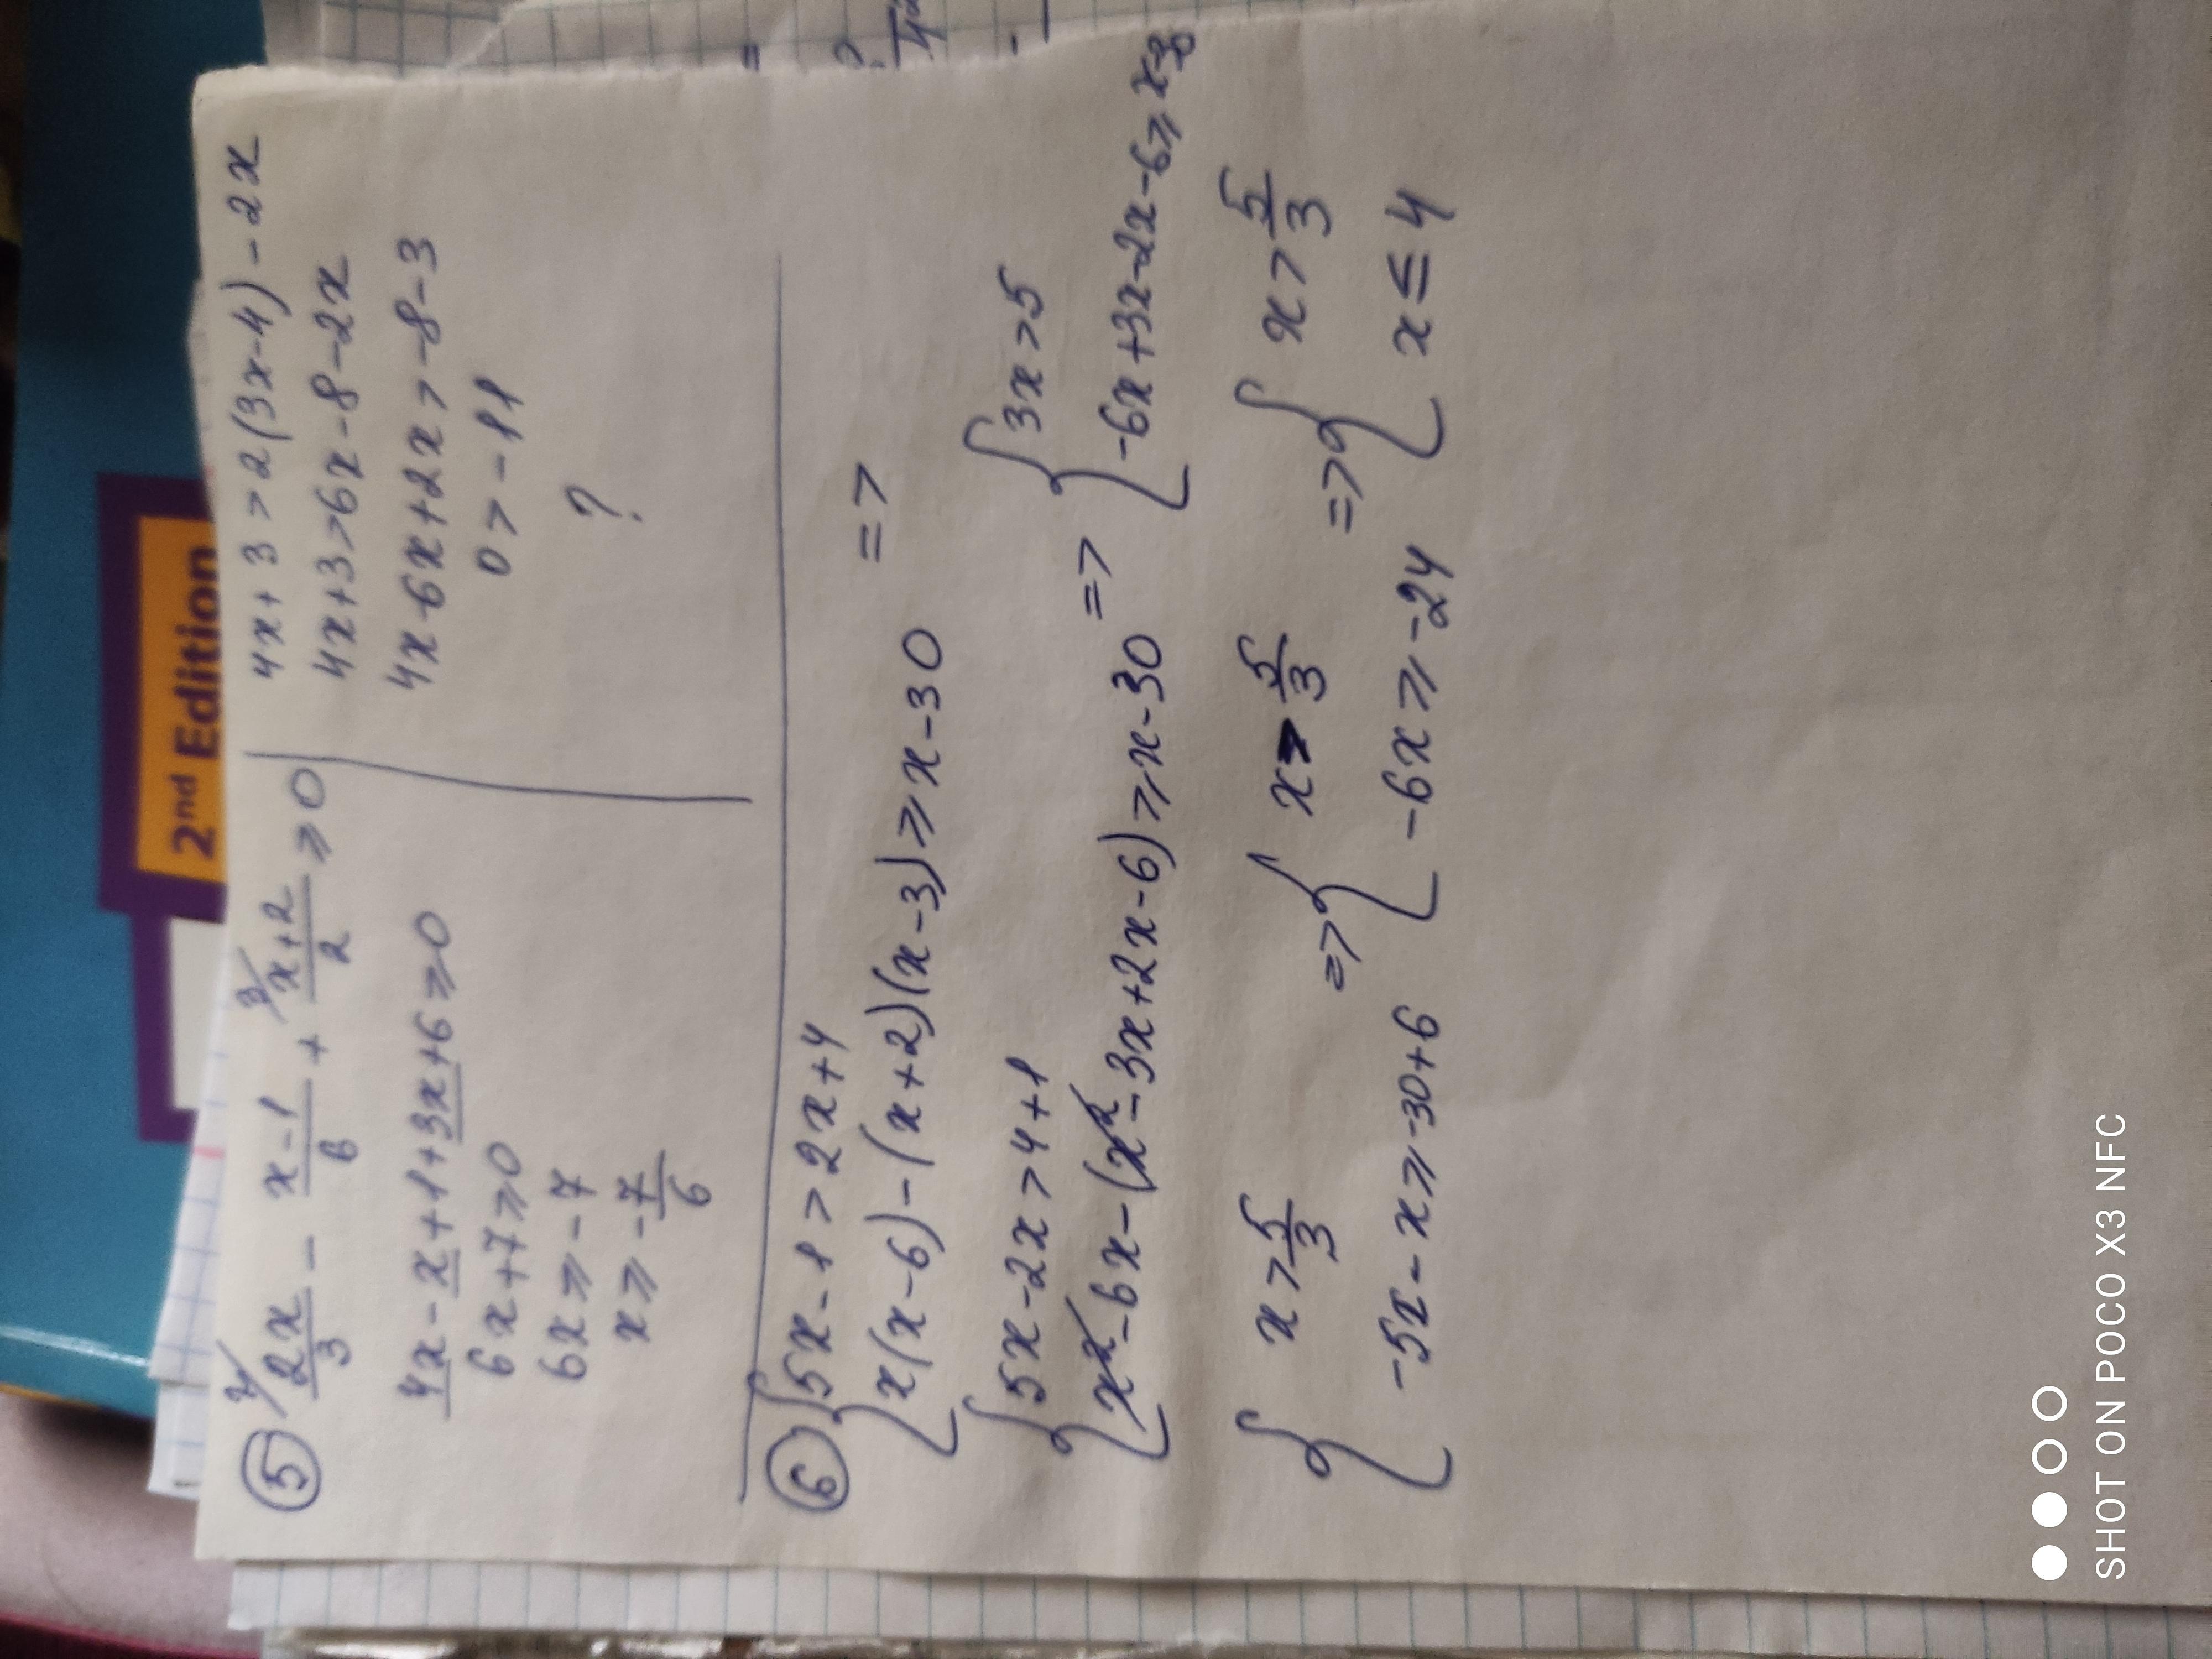 2nd Edition
⑤ 2/ 2x/3 - x-1/6 + 3/ x+2/2 ⩾ 0
4x - x + 1 + 3x + 6 ⩾ 0
6x + 7 ⩾ 0
6x ⩾ -7
x ⩾ -7/6
4x + 3 > 2(3x-4) - 2x
4x + 3 > 6x - 8 - 2x
4x - 6x + 2x > -8 - 3
0 > -11
?
⑥ { 5x - 1 > 2x + 4
x(x-6) - (x+2)(x-3) ⩾ x - 30 =>
{ 5x - 2x > 4 + 1
x² - 6x - (x² - 3x + 2x - 6) ⩾ x - 30 =>
{ 3x > 5
-6x + 3x - 2x - 6 ⩾ x
{ x > 5/3
-5x - x ⩾ -30 + 6
=> { x > 5/3
-6x ⩾ -24
=> { x > 5/3
x ≤ 4
SHOT ON POCO X3 NFC